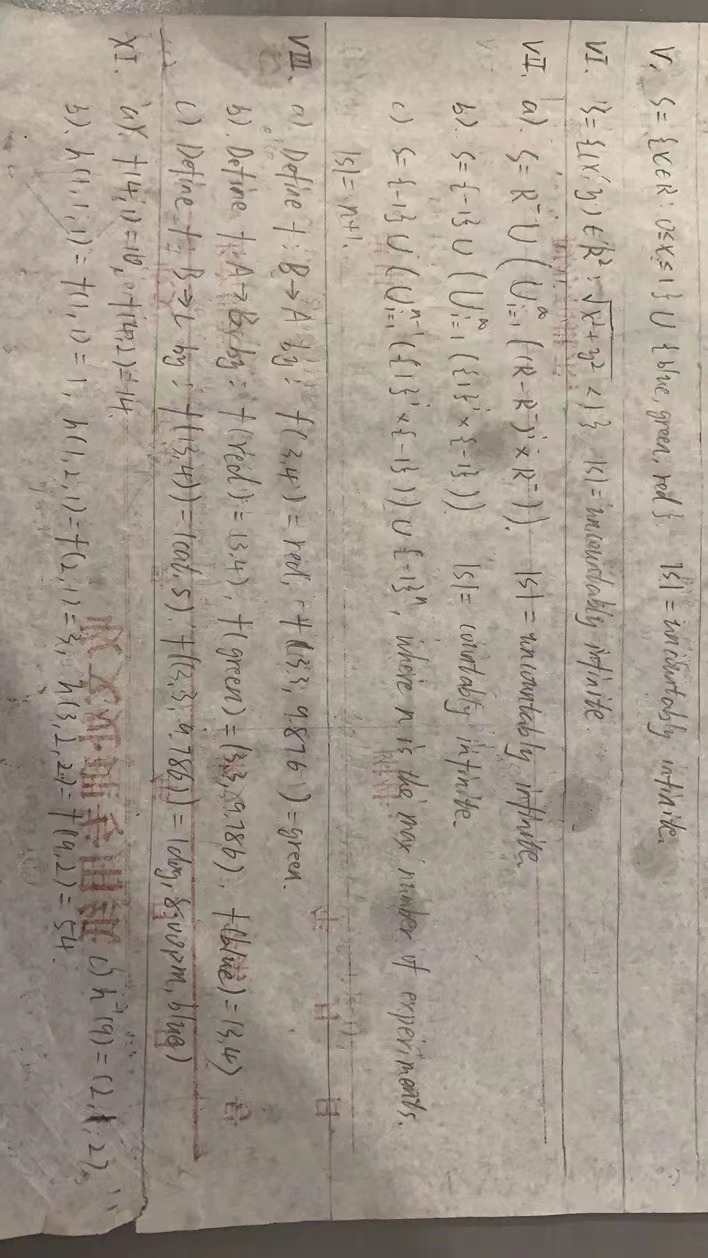 V. S = {x∈R : 0≤x≤1} ∪ {blue, green, red}. |S| = uncountably infinite.
VI. S = {(x, y) ∈ R² : √(x²+y²) < 1} |S| = uncountably infinite.
VII. a). S = R⁻ ∪ (∪ᵢ₌₁^∞ ((R - R⁻)ⁱ × R⁻)). |S| = uncountably infinite.
b). S = {-1} ∪ (∪ᵢ₌₁^∞ ({1}ⁱ × {-1})) |S| = countably infinite.
c) S = {-1} ∪ (∪ᵢ₌₁^{n-1} ({1}ⁱ × {-1})) ∪ {-1}ⁿ, where n is the max number of experiments.
|S| = n+1.
VIII. a) Define f : B→A by : f(3,4) = red, f((3.3, 9.876)) = green.
b). Define f : A→B by : f(red) = (3,4), f(green) = (3.3, 9.786), f(blue) = (3,4)
c) Define f : B→C by : f((3,4)) = (cat, 5) f((3.3, 9.786)) = (dog, 8:00pm, blue)
XI. a). f(4,1) = 10, f(4,2) = 14.
c) h⁻¹(9) = (2,1,2).
b). h(1,1,1) = f(1,1) = 1, h(1,2,1) = f(2,1) = 3, h(3,2,2) = f(9,2) = 54.